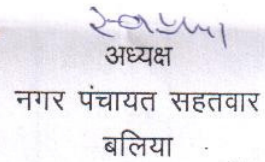 अध्यक्ष
नगर पंचायत सहतवार
बलिया